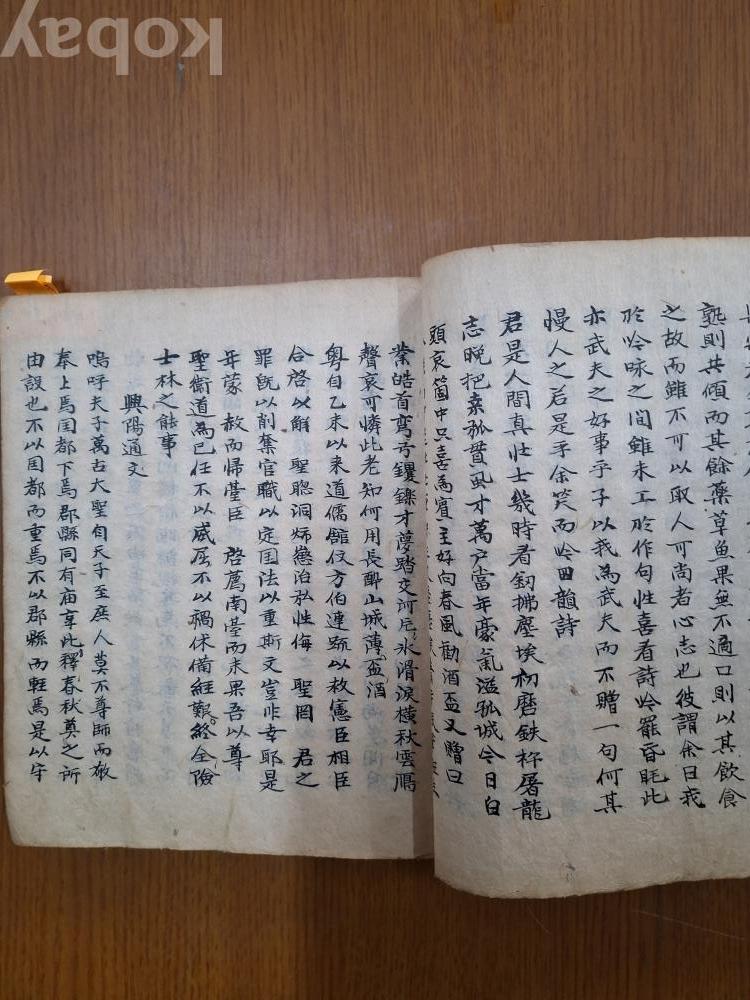 熟則共傾而其餘藥草魚果無不適口則以其飮食
之故而雖不可以取人可尚者心志也彼謂余曰我
於吟咏之間雖未工於作句性喜看詩吟罷昏眊此
亦武夫之好事乎子以我為武夫而不贈一句何其
慢人之若是乎余笑而吟四韻詩
君是人間真壮士幾時看釼拂塵埃初磨鉄杵屠龍
志晩把桒弧貫虱才萬戶當年豪氣溢孤城今日白
頭哀箇中只喜為賓主好向春風勸酒盃又贈曰
業皓首弯弓鑺鑠才夢踏交河尼氷滑淚橫秋雲鴈
聲哀可憐此老知何用長酔山城薄盃酒
粤自乙未以来道儒館伩方伯連䟽以救憲臣相臣
合啓以觧 聖聡洞燭懲治私性侮二聖罔 君之
罪旣以削奪官職以定囯法以重斯文豈非幸耶是
年蒙 赦而歸臺臣 啓薦南臺而未果吾以尊
聖衛道為已任不以威屈不以禍怵備經艱終全險
士林之能事
興陽通文
嗚呼夫子萬古大聖自天子至庶人莫不尊師而敬
奉上焉囯都下焉郡縣同有庙享此釋春秋奠之所
由設也不以囯都而重焉不以郡縣而軽焉是以守
Kobay